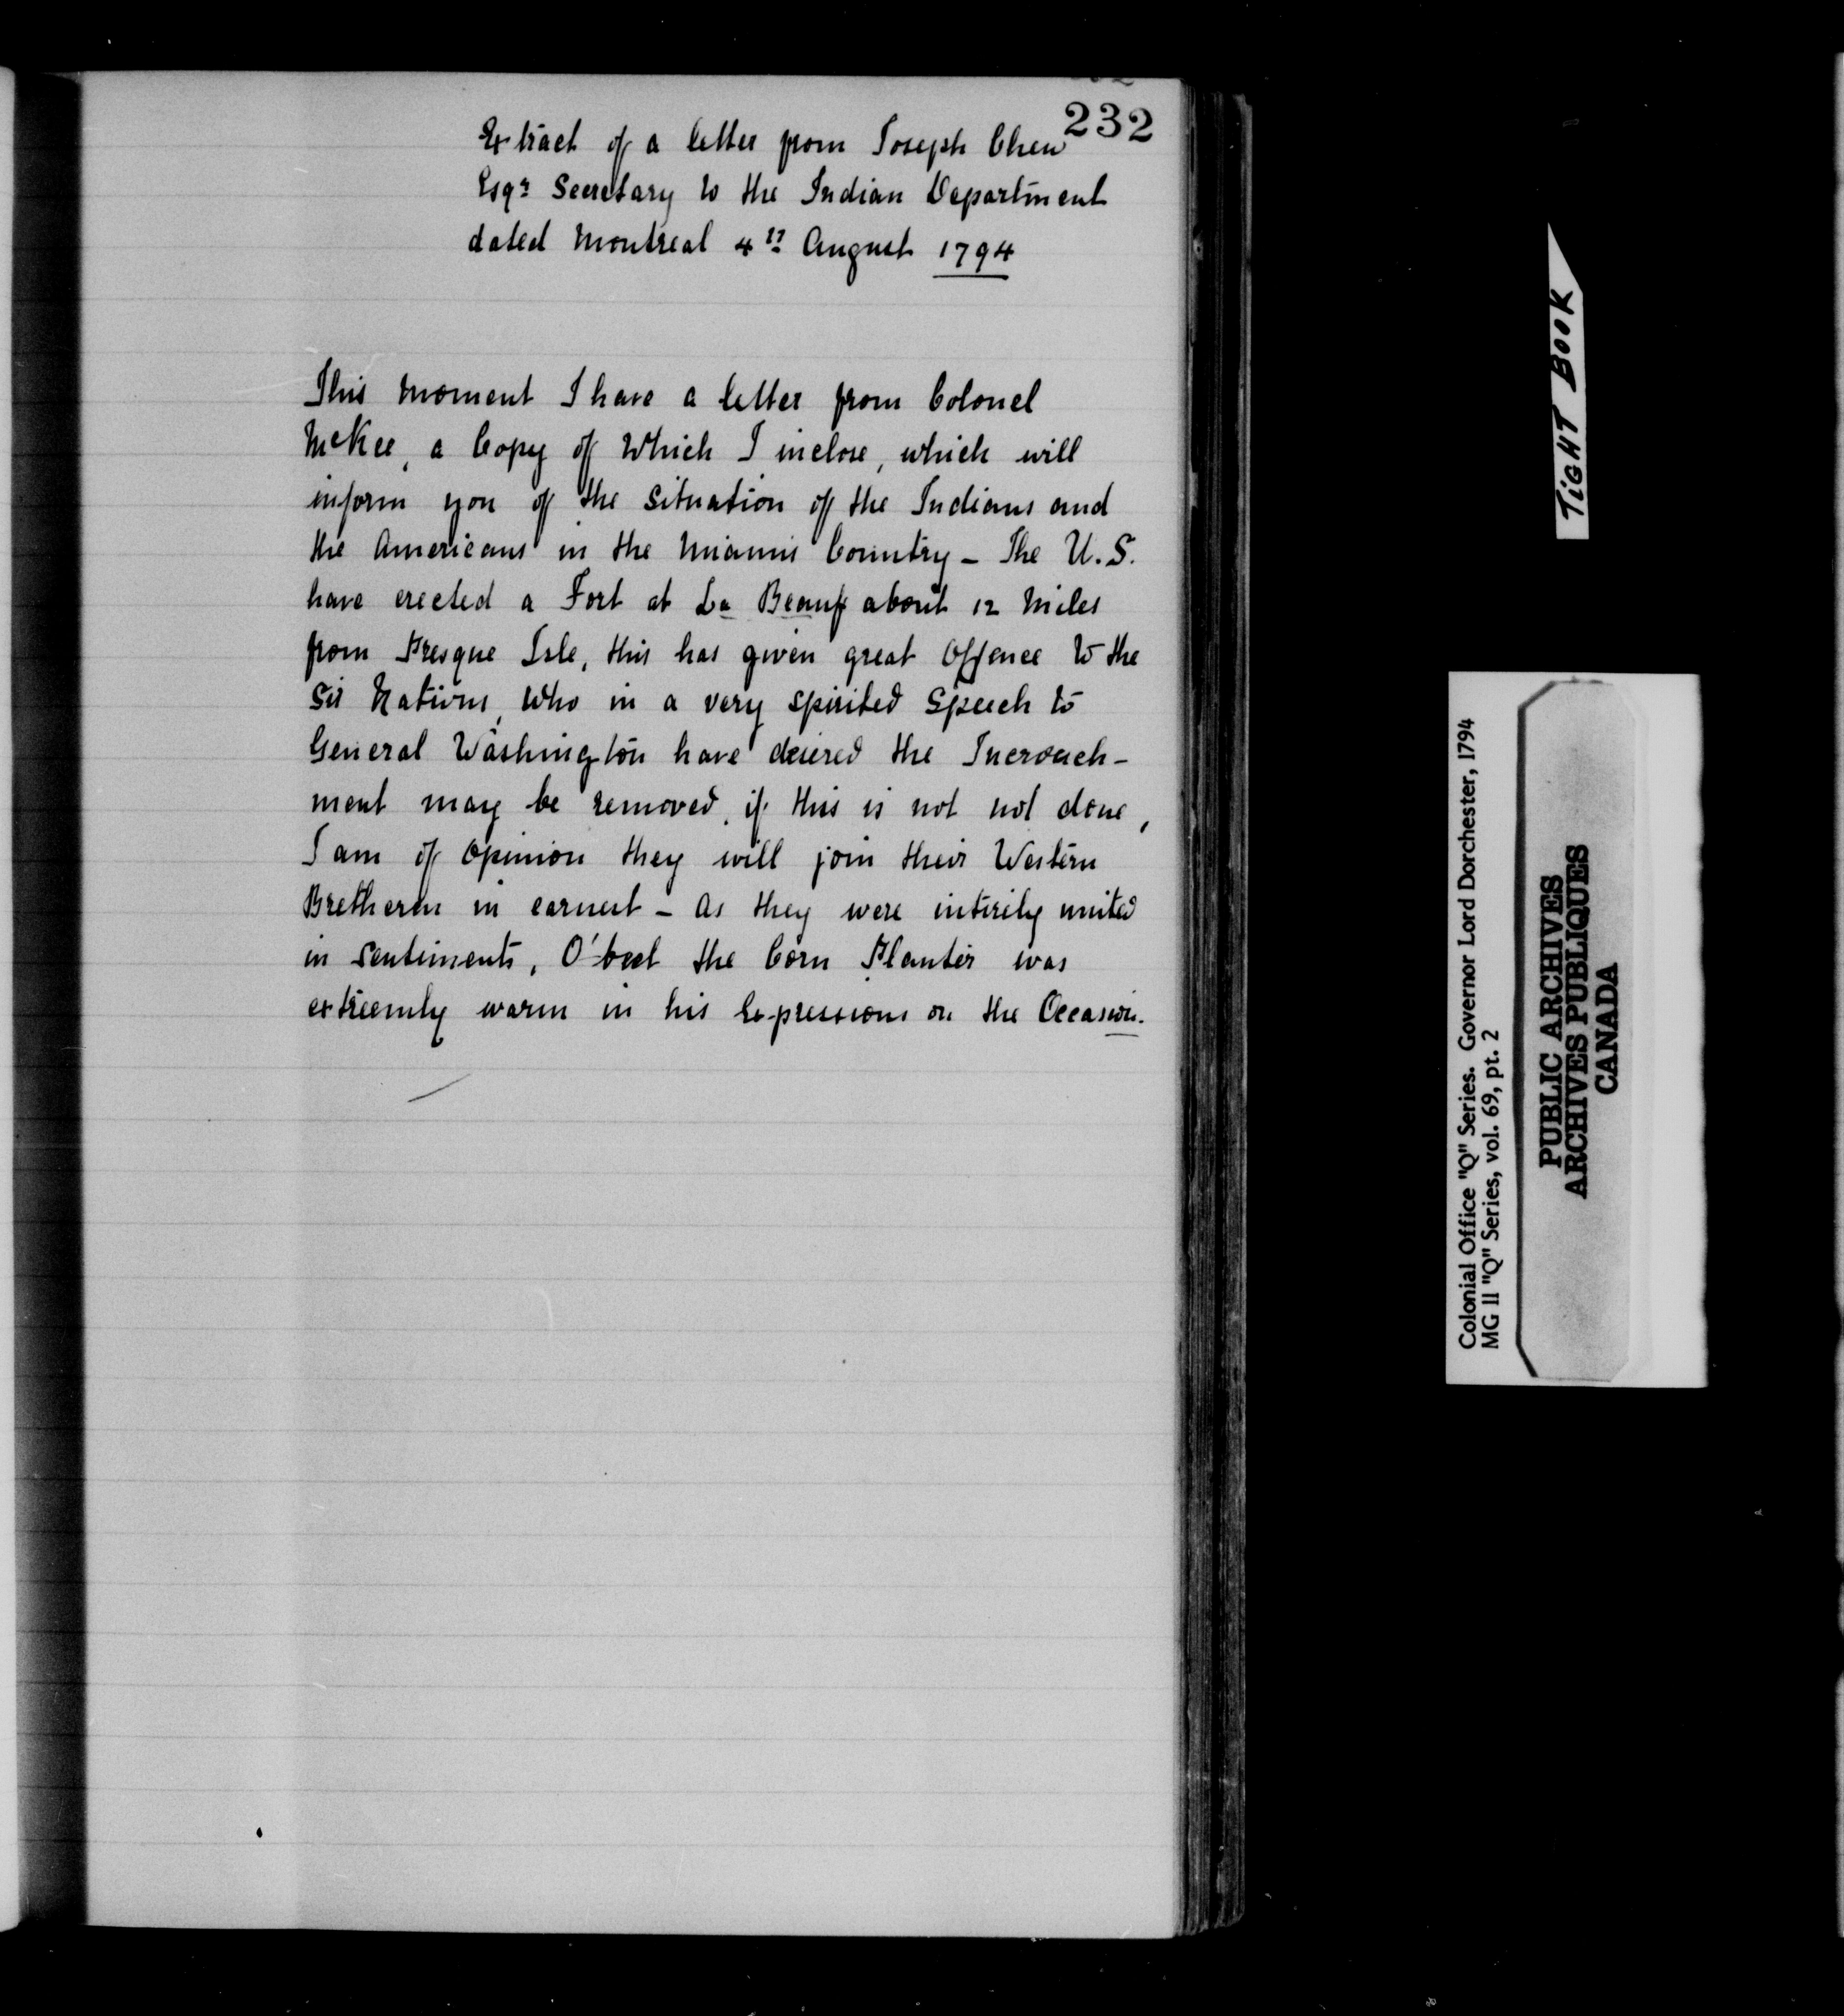 232
Extract of a letter from Joseph Chew
Esqr Secretary to the Indian Department
dated Montreal 4th August 1794
This moment I have a letter from Colonel
McKee, a Copy of Which I inclose, which will
inform you of the situation of the Indians and
the Americans in the Miamis Country - The U.S.
have erected a Fort at La Beauf about 12 Miles
from Presque Isle, this has given great Offence to the
Six Nations, Who in a very spirited Speech to
General Washington have desired the Incroach-
ment may be removed, if this is not not done,
I am of Opinion they will join their Western
Bretheren in earnest - As they were intirely united
in Sentiments, O'beel the Corn Planter was
extreemly warm in his Expressions on the Occasion.
TIGHT BOOK
Colonial Office "Q" Series. Governor Lord Dorchester, 1794
MG 11 "Q" Series, vol. 69, pt. 2
PUBLIC ARCHIVES
ARCHIVES PUBLIQUES
CANADA